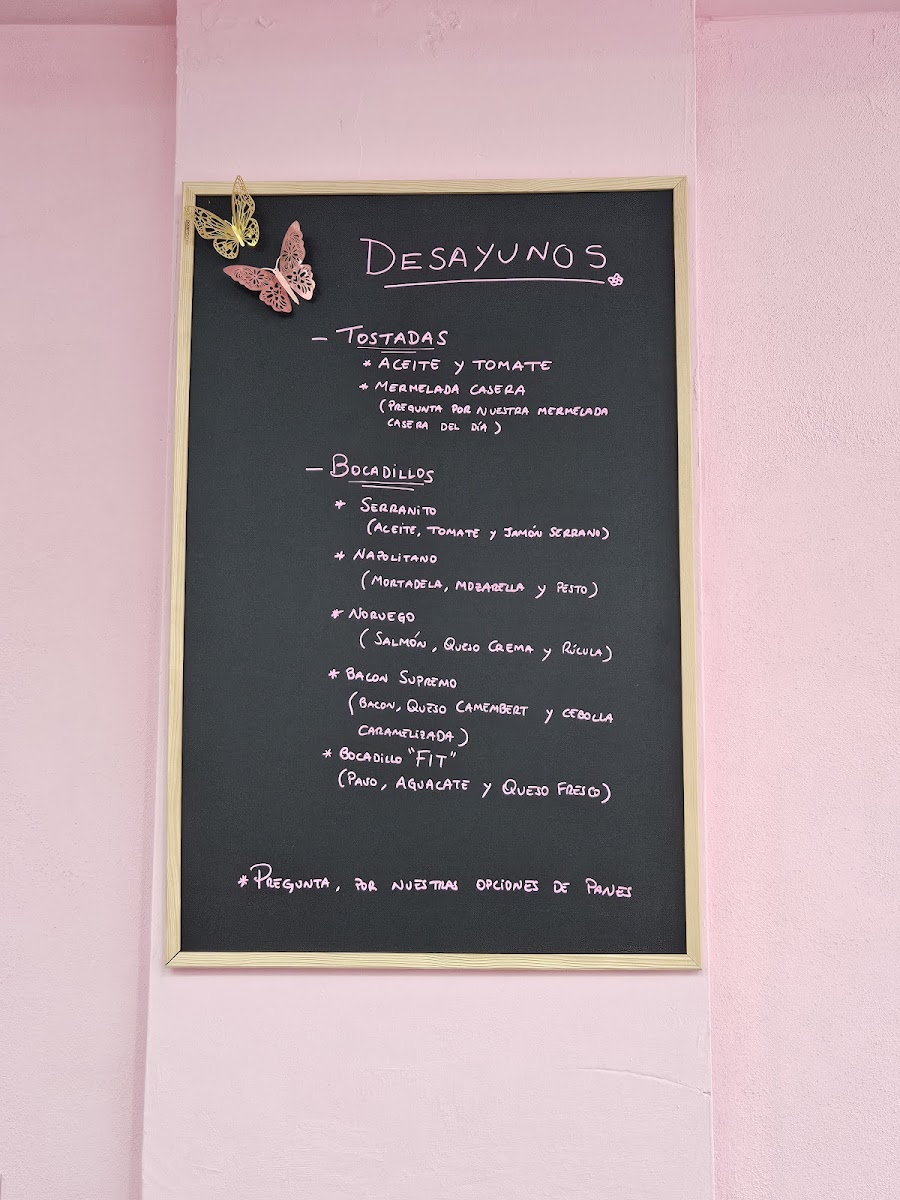 DESAYUNOS
- TOSTADAS
* ACEITE Y TOMATE
* MERMELADA CASERA
(PREGUNTA POR NUESTRA MERMELADA
CASERA DEL DÍA)
- BOCADILLOS
* SERRANITO
(ACEITE, TOMATE Y JAMÓN SERRANO)
* NAPOLITANO
(MORTADELA, MOZARELLA Y PESTO)
* NORUEGO
(SALMÓN, QUESO CREMA Y RÚCULA)
* BACON SUPREMO
(BACON, QUESO CAMEMBERT Y CEBOLLA
CARAMELIZADA)
* BOCADILLO "FIT"
(PAVO, AGUACATE Y QUESO FRESCO)
*PREGUNTA, POR NUESTRAS OPCIONES DE PANES